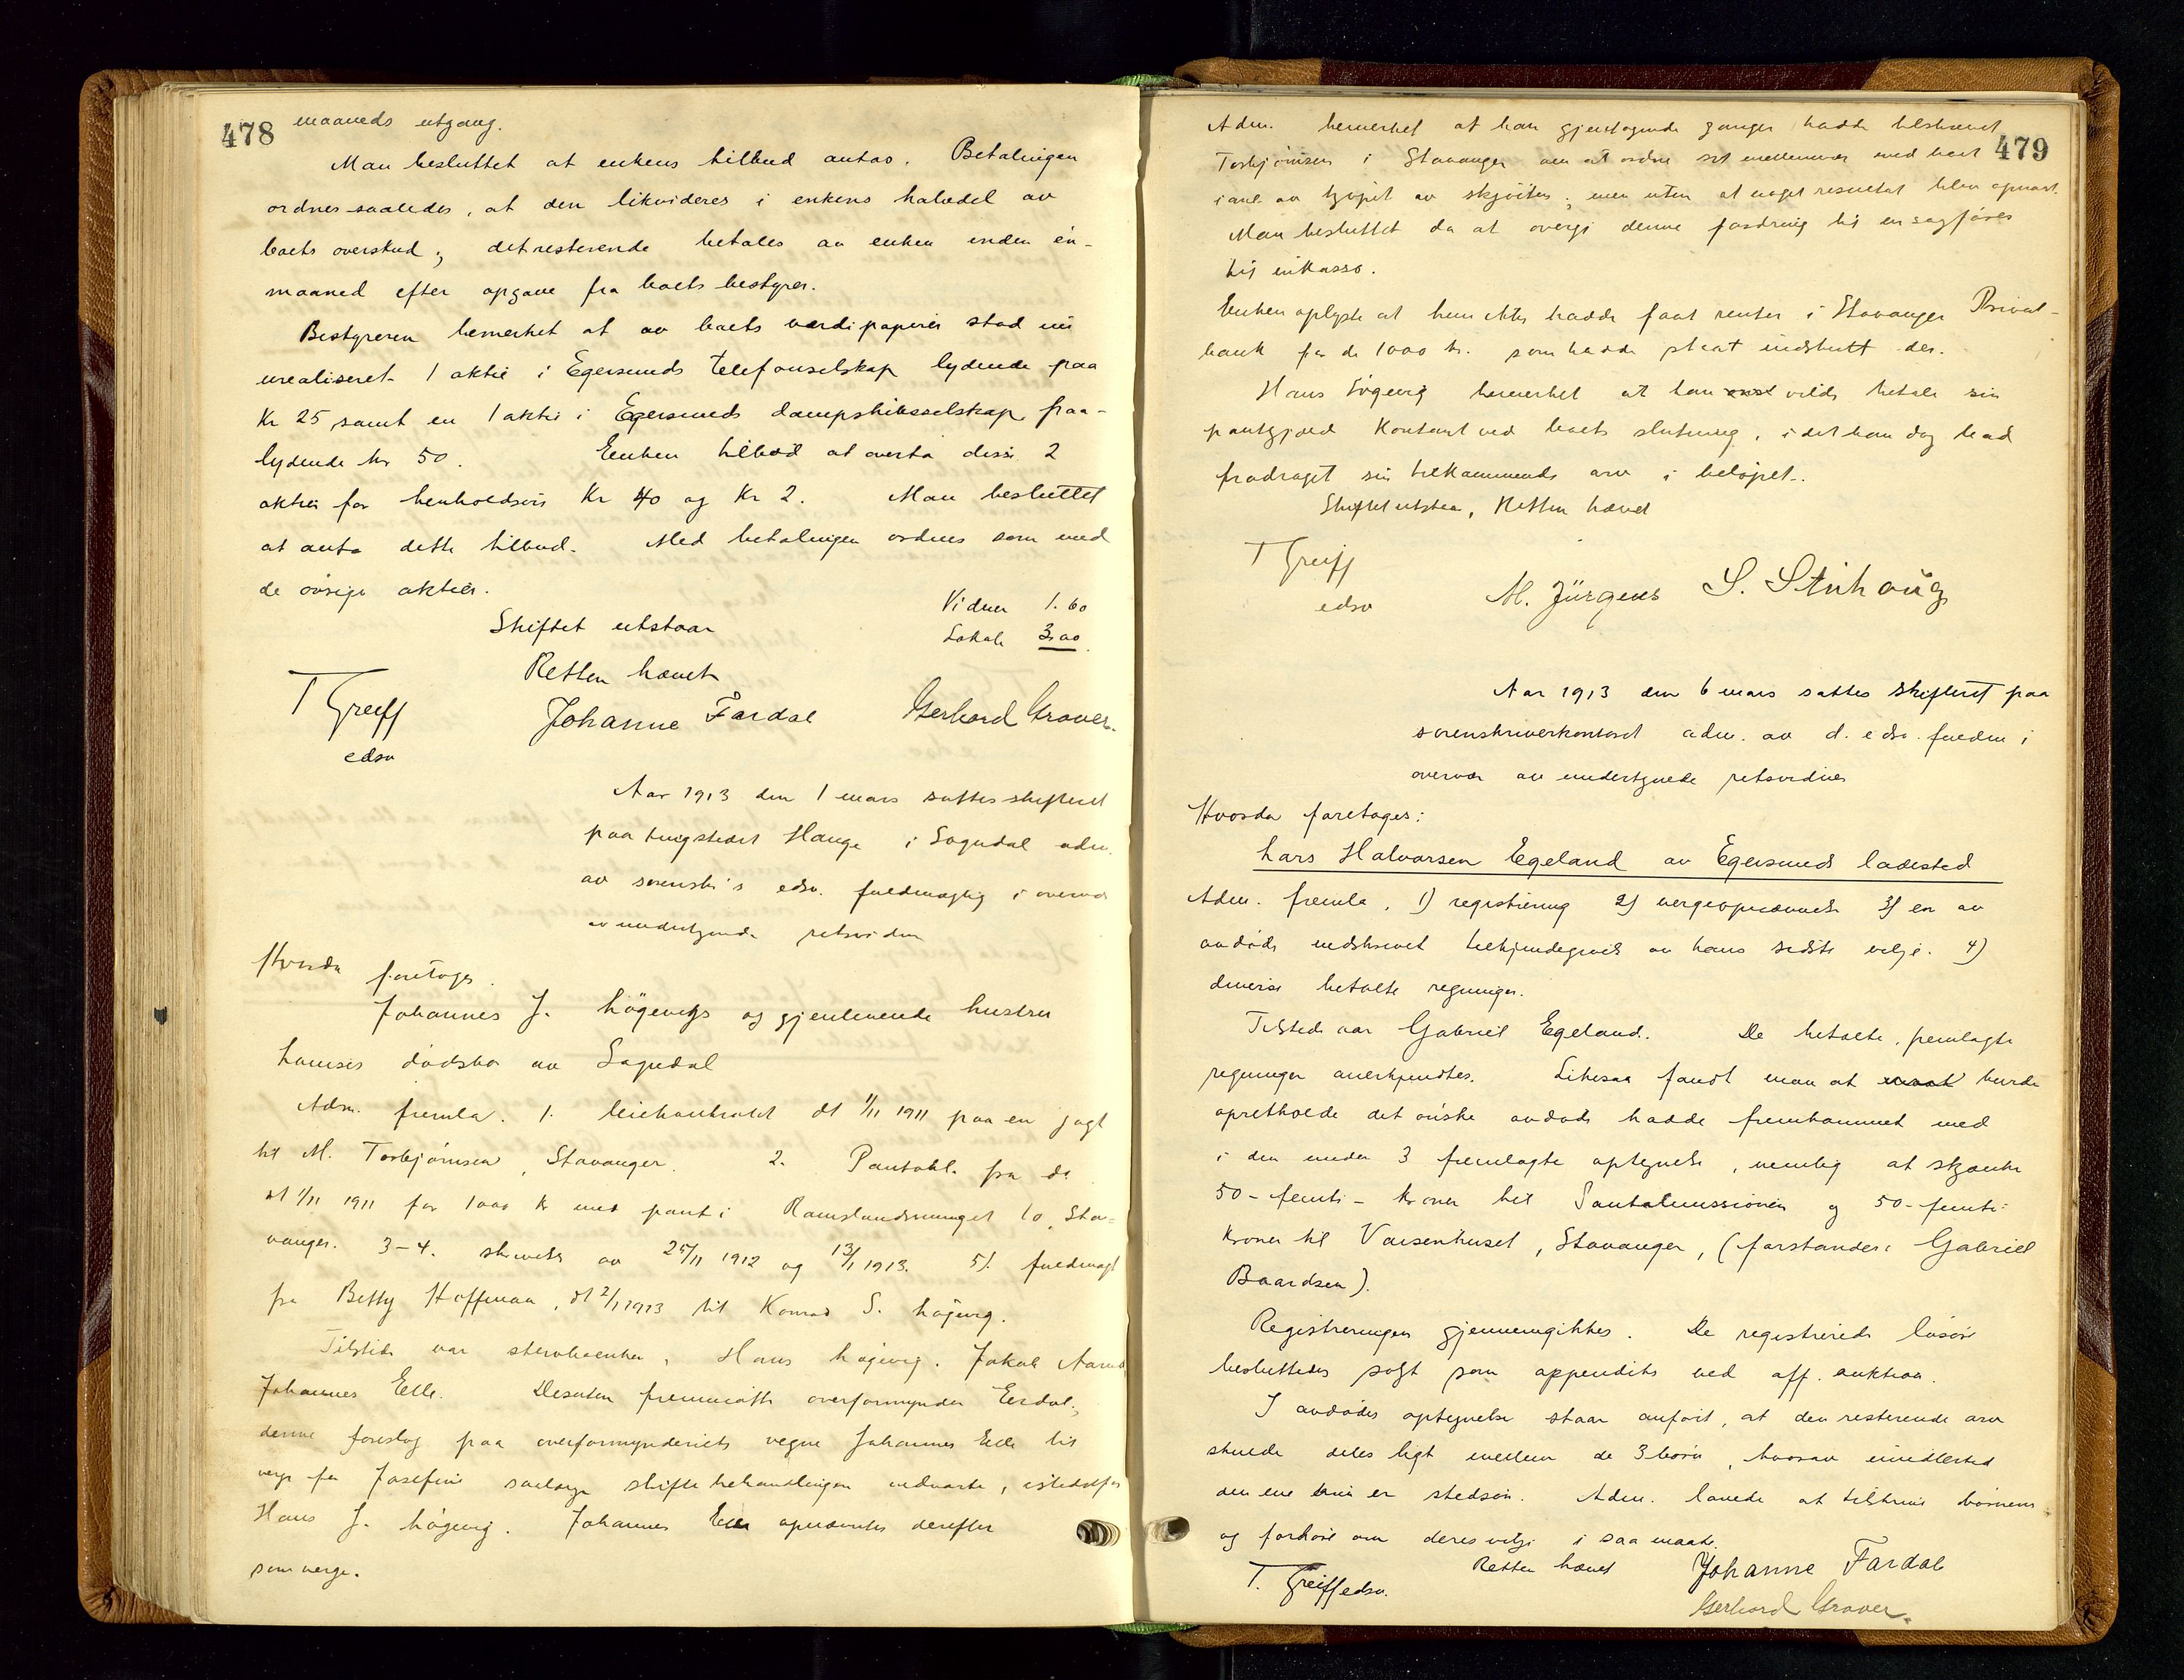 478
maaneds utgang.
Man besluttet at enkens tilbud antas. Betalingen
ordnes saaledes, at den likvideres i enkens halvdel av
boets overskud; det resterende betales av enken inden én-
maaned efter opgave fra boets bestyrer.
Bestyreren bemerket at av boets værdipapirer stod uu
urealiseret 1 aktie i Egersunds telefonselskap lydende paa
Kr 25 samt en 1 aktie i Egersunds dampskibsselskap paa-
lydende kr 50. Enken tilbød at overta disse 2
aktier for henholdsvis Kr 40 og Kr 2. Man besluttet
at anta dette tilbud. Med betalingen ordnes som med
de øvrige aktier.
Vidner 1.60
Skiftet utstaar
Lokale 3.00
Retten hævet
T Greiff
edsv
Johanne Fardal
Gerhard Graver.
Aar 1913 den 1 mars sattes skifteret
paa tingstedet Hauge i Sogndal adm.
av sorenskr's edsv. fuldmægtig i overvær
av undertegnede retsvidner
Hvorda foretoges.
Johannes J. Løgevigs og gjenlevende hustru
Lovises dødsbo av Sogndal
Adm. fremla. 1. leiekontrakt dt 1/11 1911 paa en jagt
til M. Torbjørnsen, Stavanger. 2. Pantobl. fra do
dt 1/11 1911 for 1000 kr med pant i Ramslandsmuget 10, Sta-
vanger. 3-4. skrivelse av 25/11 1912 og 13/1 1913. 5/. fuldmagt
fra Betty Hoffman, dt 2/1 1913 til Konrad S. Løgevig.
Tilstede var sterboenken, Hans Løgevig. Jakob
Johannes Eele. Desuten fremmøtte overformynder Eerdal;
denne foreslog paa overformynderiets vegne Johannes Eele til
verge for Josefine saalænge skiftebehandlingen vedvarte, istedetfor
Hans J. Løgevig. Johannes Eele opnævntes derefter
som verge.
479
Adm. bemerket at han gjentagende ganger hadde tilskrevet
Torbjørnsen i Stavanger om at ordne sit mellemvær med boet
i anl. av kjøpet av skjøiten; men uten at noget resultat blev opnaat.
Man besluttet da at overgi denne fordring til en sagfører
til inkasso.
Enken oplyste at hun ikke hadde faat renter i Stavanger Privat-
bank for de 1000 kr. som hadde staat indsatt der.
Hans Løgevig bemerket at han vilde betale sin
pantgjæld kontant ved boets slutning, idet han dog bad
fradraget sin tilkommende arv i beløpet.
Skiftet utstaar, Retten hævet
T Greiff
edsv
M. Jürgens S. Stuhaug
Aar 1913 den 6 mars sattes skifteret paa
sorenskriverkontoret adm. av d. edsv. fuldm i
overvær av undertegnede retsvidner
Hvorda foretoges:
Lars Halvorsen Egeland av Egersunds ladested
Adm. fremla, 1) registrering 2) vergeopnævnelse 3) en av
avdøde nedskrevet tilkjendegivelse av hans sidste vilje. 4)
diverse betalte regninger.
Tilstede var Gabriel Egeland. De betalte, fremlagte
regninger anerkjendtes. Likesaa fandt man at burde
opretholde det ønske avdøde hadde fremkommet med
i den under 3 fremlagte optegnelse, nemlig at skjænke
50-femti- kroner til Santalmissionen og 50-femti-
kroner til Vaisenhuset, Stavanger, (forstander Gabriel
Baardsen).
Registreringen gjennemgikkes. De registrerede løsøre
besluttedes solgt som appendiks ved off. auktion.
I avdødes optegnelse staar anført, at den resterende arv
skulde deles ligt mellem de 3 børn, hvorav imidlertid
den ene er stedsøn. Adm. lovede at tilskrive børnene
og forhøre om deres vilje i saa maate.
Retten hævet
T. Greiff edsv.
Johanne Fardal
Gerhard Graver.